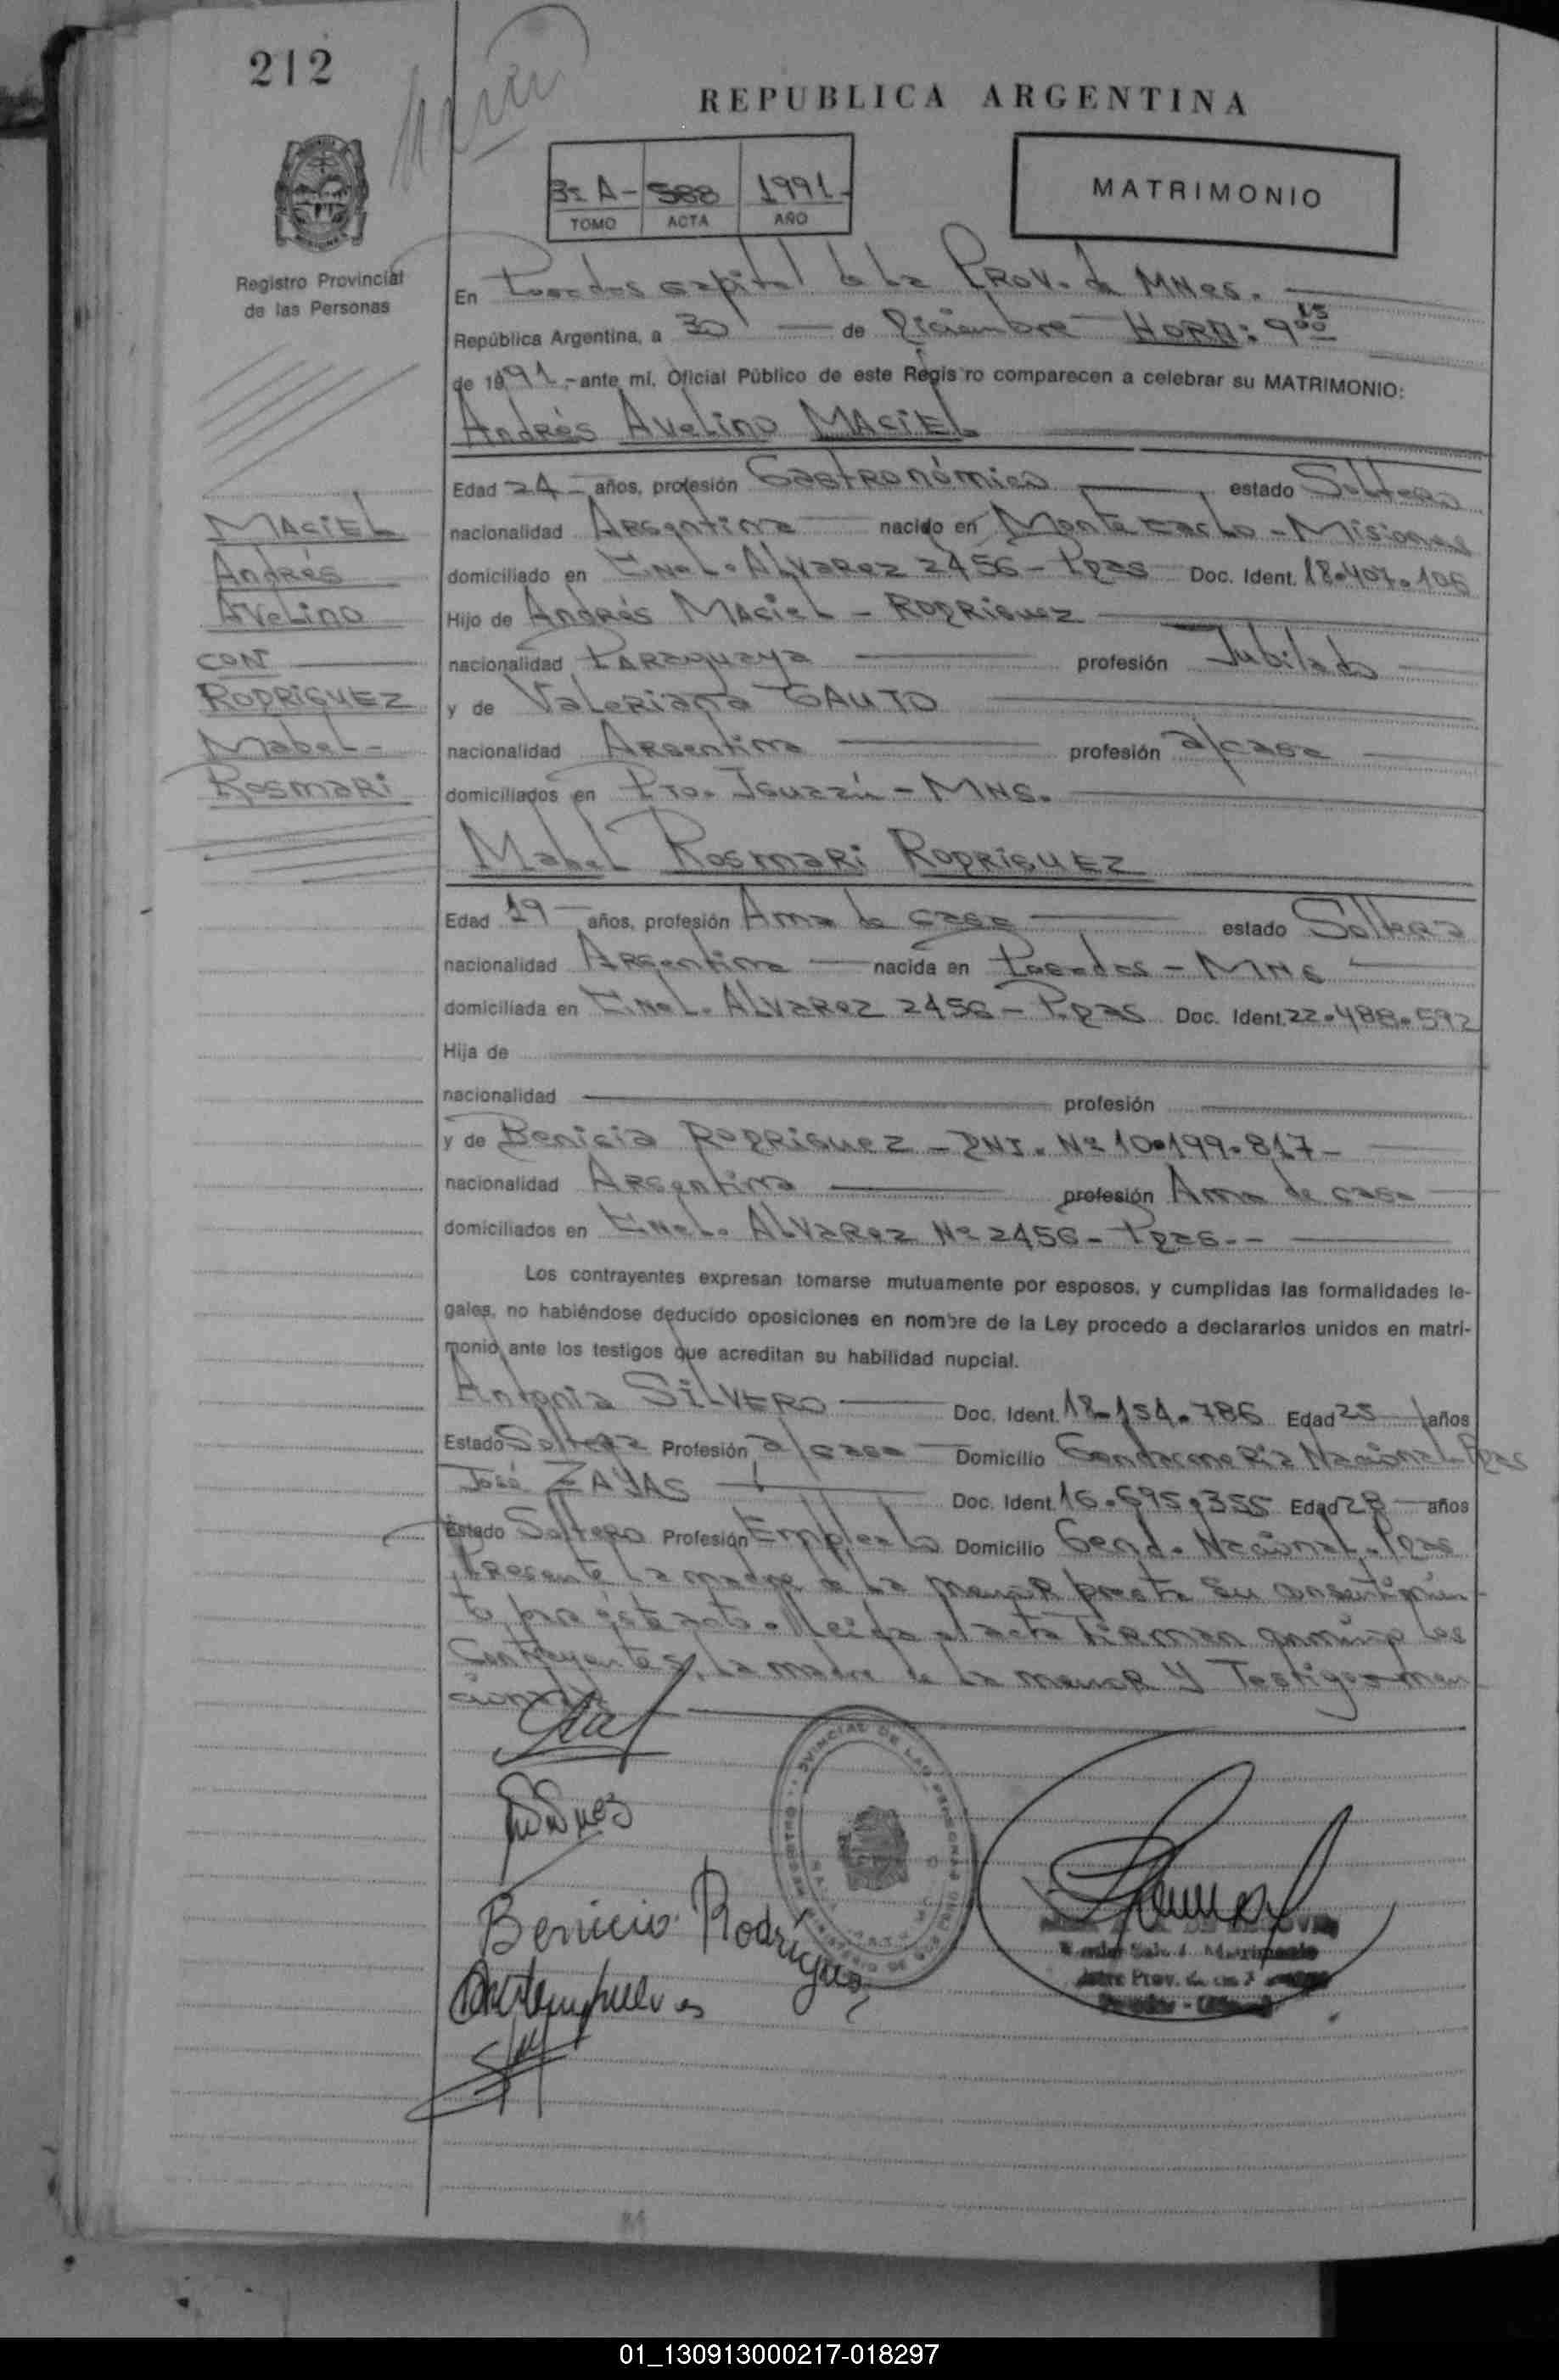 212
REPUBLICA ARGENTINA
3º A- 588 1991-
TOMO ACTA AÑO
MATRIMONIO
Registro Provincial
de las Personas
En Posadas capital de la Prov. de MNes.
República Argentina, a 30 de Diciembre HORA: 9
de 1991,- ante mí, Oficial Público de este Regis ro comparecen a celebrar su MATRIMONIO:
Andrés Avelino MACIEL
Edad 24 años, profesión Gastronómico estado Soltero
nacionalidad Argentina nacido en Montecarlo - Misiones
domiciliado en Cnel. Alvarez 2456 - Pdas Doc. Ident. 18.407.106
Hijo de Andrés Maciel - Rodriguez
nacionalidad Paraguaya profesión Jubilado
y de Valeriana GAUTO
nacionalidad Argentina profesión a/casa
domiciliados en Pto. Iguazú - MNS.
MACIEL
Andrés
Avelino
CON
RODRIGUEZ
Mabel-
Rosmari
Mabel Rosmari RODRIGUEZ
Edad 19 años, profesión Ama de casa estado Soltera
nacionalidad Argentina nacida en Posadas - MNS
domiciliada en Cnel. Alvarez 2456 - Pdas Doc. Ident. 22.488.592
Hija de
nacionalidad profesión
y de Benicia Rodriguez - DNI. Nº 10.199.817-
nacionalidad Argentina profesión Ama de casa
domiciliados en Cnel. Alvarez Nº 2456 - Pdas.--
Los contrayentes expresan tomarse mutuamente por esposos, y cumplidas las formalidades le-
gales, no habiéndose deducido oposiciones en nombre de la Ley procedo a declararlos unidos en matri-
monio ante los testigos que acreditan su habilidad nupcial.
Antonia SILVERO Doc. Ident. 18.154.786 Edad 25 años
Estado Soltera Profesión a/casa Domicilio Gendarmeria Nacional Pdas
José ZAYAS Doc. Ident. 16.695.355 Edad 28 años
Estado Soltero Profesión Empleado Domicilio Gend. Nacional - Pdas
Presente la madre de la menor presta su consentimien-
to para éste acto. Leida el acta Firman conmigo los
Contrayentes, la madre de la menor y Testigos men
cionados
Benicia Rodríguez
01_130913000217-018297